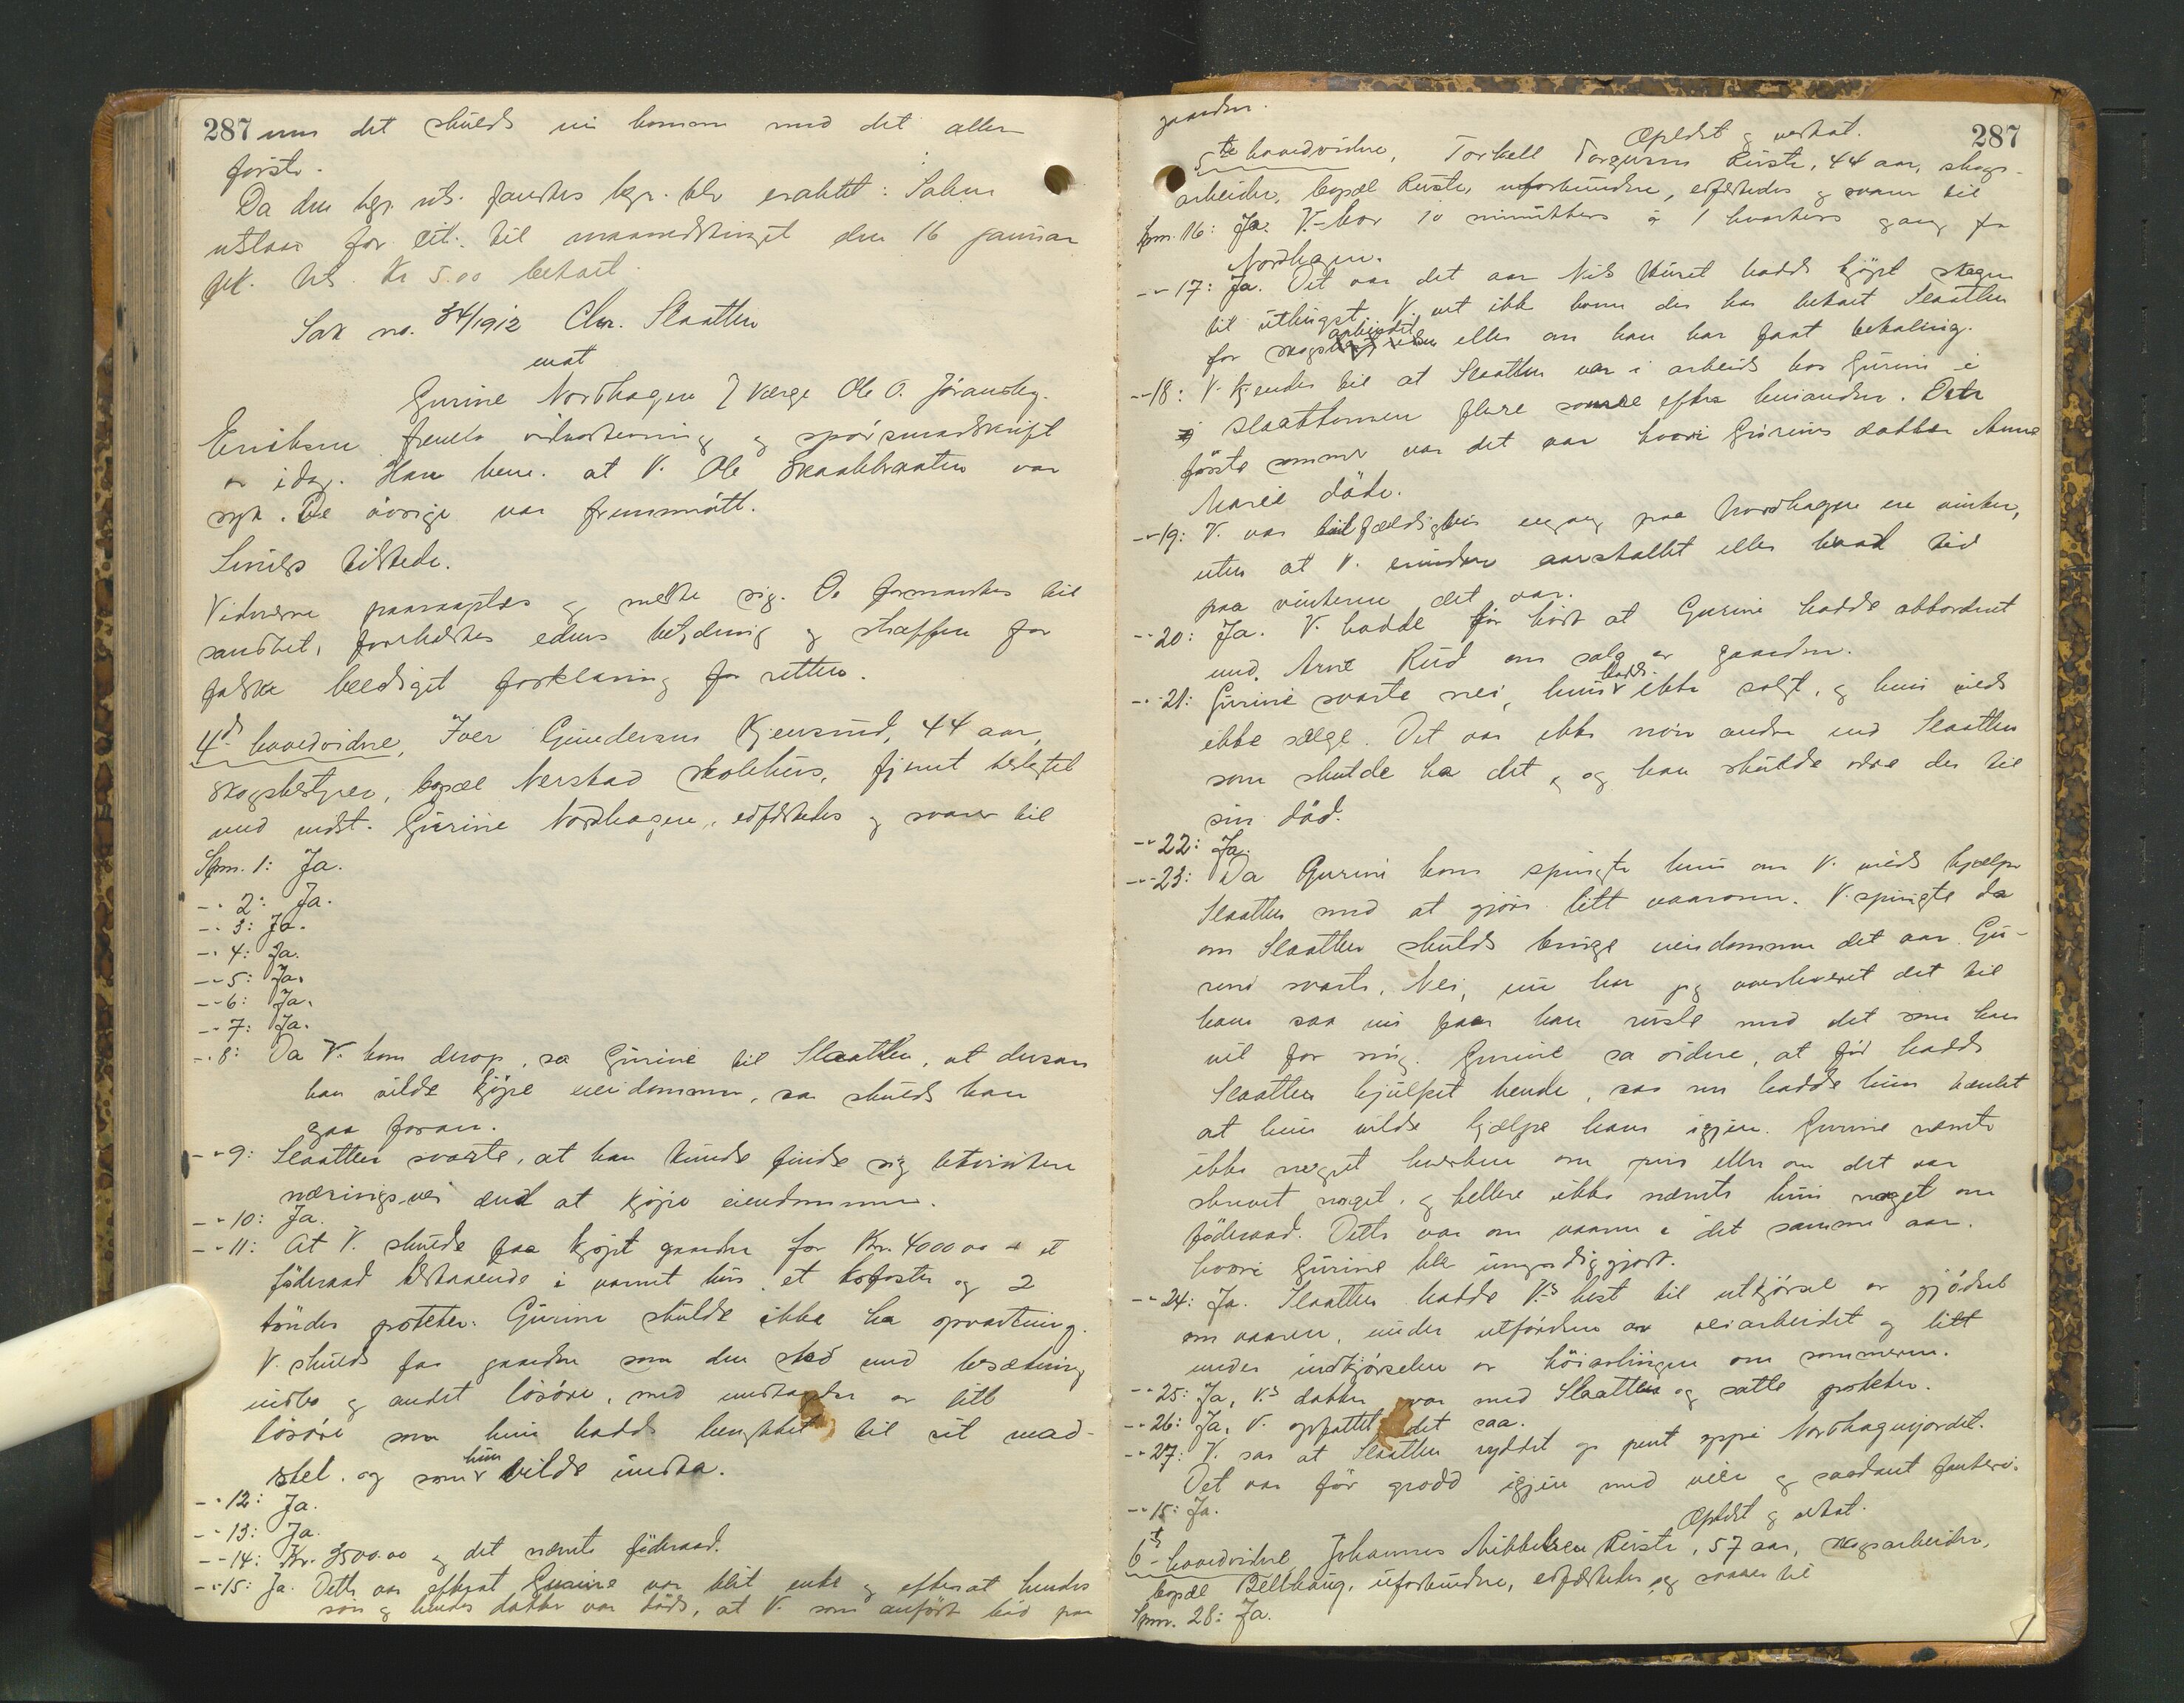 287 uns det skulds ni komme med det aller
först.
Da den bgj. uts. fandtes bgr. blev erakttet: Saken
utstaar for cit. til maanedstinget den 16 januar
pkt. Uts. Kr 5.00 betalt.
Sak no. 34/1912 Chr. Slaatten
mot
Gurine Nordhagen v/ Værge Ole O. Jöransby.
Eriksen freml. vidnestevning og spörsmaalskrift
er idag. Han bem. at V. Ole Skaalebraaten var
syk. De övrige var fremmött.
Sinils tilstede.
Vidnerne paaraaptes og meldte sig. De formantes til
sandhet, foreholdtes edens betydning og straffen for
falsk beediget forklaring for retten.
4de hovedvidne, Iver Gundersen Kjensrud, 44 aar,
skogsbestyrer, bopæl Nerstad skolehus, fjernt beslegtet
med indst. Gurine Nordhagen, edfæstedes og svarer til
Spm. 1: Ja.
-"- 2: Ja.
-"- 3: Ja.
-"- 4: Ja.
-"- 5: Ja.
-"- 6: Ja.
-"- 7: Ja.
-"- 8: Da V. kom derop, sa Gurine til Slaatten, at dersom
han vilde kjöpe eiendommen, saa skulde han
gaa foran.
-"- 9: Slaatten svarte, at han kunde finde sig letvintere
næringsvei end at kjöpe eiendommen.
-"- 10: Ja.
-"- 11: At V. skulde faa kjöpt gaarden for Kr. 4000 00 + et
föderaad bestaaende i varmt hus, et kofoster og 2
tönder poteter. Gurine skulde ikke ha opvartning.
V. skulde faa gaarden som den stod med besætning
indbo og andet lösöre, med undtagelse av litt
lösöre som hun hadde benyttet til sit mad-
stel. og som hun vilde undta.
-"- 12: Ja.
-"- 13: Ja.
-"- 14: Kr. 3500.00 og det nævnte föderaad.
-"- 15: Ja. Dette var efterat Gurine var blit enke og efterat hendes
sön og hendes datter var döde, at V. som anfört böd paa
gaarden.
Oplæst og vedtat.
287
5te hovedvidne, Torkell Torgersen Ruste, 44 aar, skogs-
arbeider, bopæl Ruste, uforbunden, edfæstedes og svarer til
Spm. 16: Ja. V. bor 10 minutters à 1 kvarters gang fra
Nordhagen.
-"- 17: Ja. Det var det aar Nils Kuret hadde kjöpt skogen
til uthugst. V. vet ikke hvem der har betalt Slaatten
for skogsarbeidet eller om han har faat betaling.
-"- 18: V. kjender til at Slaatten var i arbeide hos Gurine i
slaattonnen flere somre efter hinanden. Dette
förste sommer var det aar hvori Gurines datter Anne
Marie döde.
-"- 19: V. var tilfældigvis engang paa Nordhagen en vinter,
uten at V. erindrer aarstallet eller hvad tid
paa vinteren det var.
-"- 20: Ja. V. hadde för hört at Gurine hadde akkordert
med Arne Rud om salg av gaarden.
-"- 21: Gurine svarte nei, hun hadde ikke solgt, og hun vilde
ikke sælge. Det var ikke nöie andre end Slaatten
som skulde ha det, og han skulde være der til
sin död.
-"- 22: Ja.
-"- 23: Da Gurine kom spurgte hun om V. vilde hjælpe
Slaatten med at gjöre litt vaaronn. V. spurgte da
om Slaatten skulde bruge eiendommen det aar. Gu-
rine svarte, Nei, nu har jeg overleveret det til
ham saa nu faar han ruste med det som han
vil for mig. Gurine sa videre, at för hadde
Slaatten hjulpet hende, saa nu hadde hun tænkt
at hun vilde hjælpe ham igjen. Gurine nævnte
ikke noget hverken om pris eller om det var
skrevet noget, og hellere ikke nævnte hun noget om
föderaad. Dette var om vaaren i det samme aar,
hvori Gurine ble umyndiggjort.
-"- 24: Ja. Slaatten hadde V.s hest til utkjörsel av gjödsel
om vaaren, under utförelsen av veiarbeidet og litt
under indkjörselen av höiavlingen om sommeren.
-"- 25: Ja, V.s datter var med Slaatten og satte poteter.
-"- 26: Ja, V. opfattet det saa.
-"- 27: V. saa at Slaatten ryddet op pent oppi Nordhagenjordet.
Det var för grodd igjen med veier og saadant fanteri.
-"- 15: Ja.
Oplæst og vedtat.
6te hovedvidne Johannes Mikkelsen Ruste, 57 aar, skogsarbeider,
bopæl Bellhaug, uforbunden, edfæstedes og svarer til
Spm. 28: Ja.